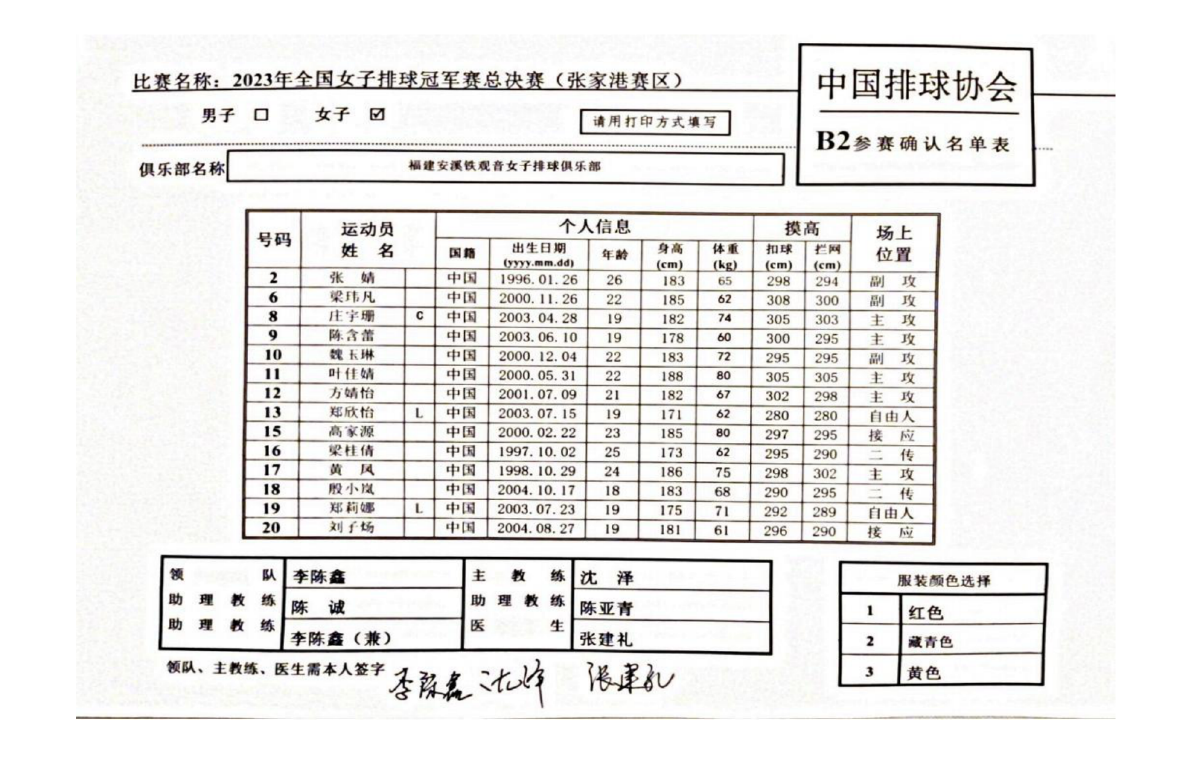 比赛名称：2023年全国女子排球冠军赛总决赛（张家港赛区）
男子 □ 女子 ☑
请用打印方式填写
中国排球协会
B2参赛确认名单表
俱乐部名称 福建安溪铁观音女子排球俱乐部
号码 运动员姓名 个人信息 摸高 场上位置
国籍 出生日期(yyyy.mm.dd) 年龄 身高(cm) 体重(kg) 扣球(cm) 拦网(cm)
2 张 婧 中国 1996.01.26 26 183 65 298 294 副 攻
6 梁玮凡 中国 2000.11.26 22 185 62 308 300 副 攻
8 庄宇珊 C 中国 2003.04.28 19 182 74 305 303 主 攻
9 陈含蕾 中国 2003.06.10 19 178 60 300 295 主 攻
10 魏玉琳 中国 2000.12.04 22 183 72 295 295 副 攻
11 叶佳婧 中国 2000.05.31 22 188 80 305 305 主 攻
12 方婧怡 中国 2001.07.09 21 182 67 302 298 主 攻
13 郑欣怡 L 中国 2003.07.15 19 171 62 280 280 自由人
15 高家源 中国 2000.02.22 23 185 80 297 295 接 应
16 梁桂倩 中国 1997.10.02 25 173 62 295 290 二 传
17 黄 凤 中国 1998.10.29 24 186 75 298 302 主 攻
18 殷小岚 中国 2004.10.17 18 183 68 290 295 二 传
19 郑莉娜 L 中国 2003.07.23 19 175 71 292 289 自由人
20 刘子炀 中国 2004.08.27 19 181 61 296 290 接 应
领 队 李陈鑫 主 教 练 沈 泽
助 理 教 练 陈 诚 助 理 教 练 陈亚青
助 理 教 练 李陈鑫（兼） 医 生 张建礼
服装颜色选择
1 红色
2 藏青色
3 黄色
领队、主教练、医生需本人签字 李陈鑫 沈泽 张建礼